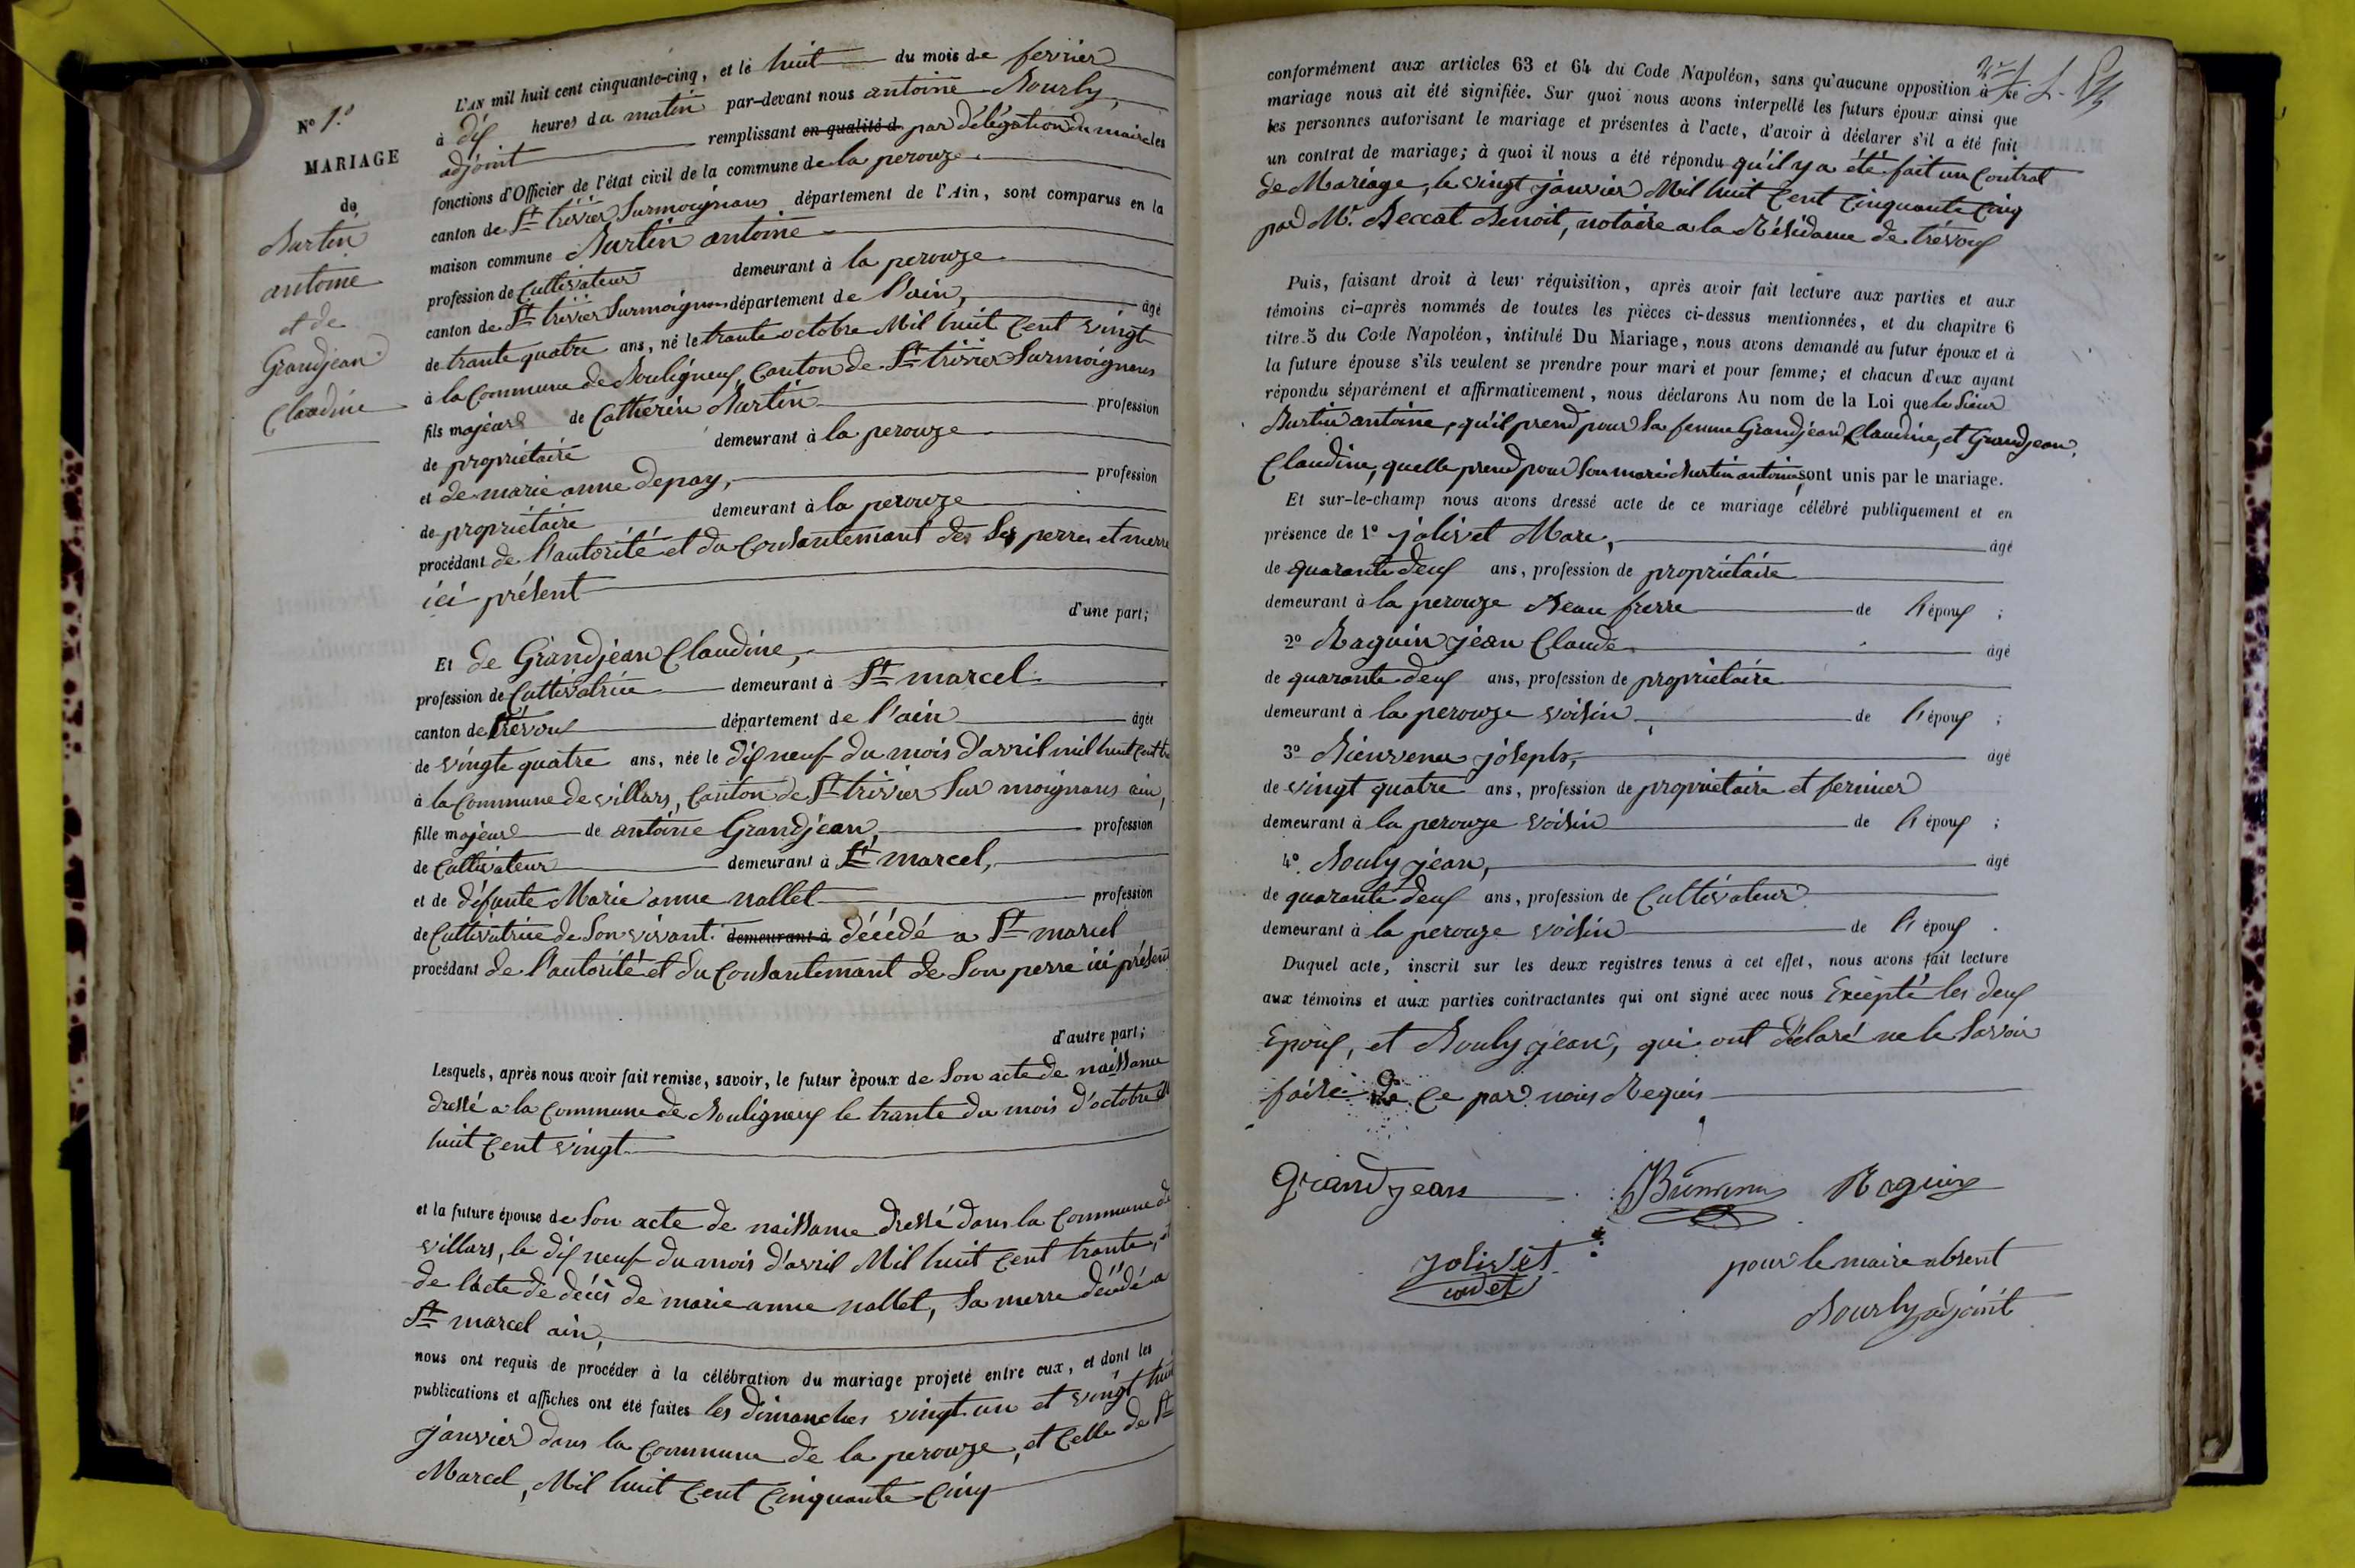 N° 1.°
MARIAGE
de
Burtin
antoine
et de
Grandjean
Claudine
L'AN mil huit cent cinquante-cinq, et le huit du mois de fevrier
à dix heures du matin par-devant nous antoine Bourly,
adjoint remplissant en qualité d par délégation du maire les
fonctions d'Officier de l'état civil de la commune de la perouze
canton de St trivier Surmoignans département de l'Ain, sont comparus en la
maison commune Burtin antoine
profession de Cultivateur demeurant à la perouze
canton de St trivier Surmoignans département de l'ain, âgé
de trante quatre ans, né le trante octobre Mil huit Cent vingt
à la Commune de Bouligneux, Canton de St trivier Surmoignans
fils majeur de Catherin Burtin profession
de propriétaire demeurant à la perouze
et de marie anne depay, profession
de propriétaire demeurant à la perouze
procédant de l'autorité et du Consantemant des Ses perre et merre
ici présent
d'une part;
Et de Grandjean Claudine,
profession de Cultivatrice demeurant à St marcel
canton de trévoux département de l'ain âgée
de vingte quatre ans, née le dix neuf du mois d'avril mil huit Cent
à la Commune de villars, Canton de St trivier Sur moignans ain,
fille majeur de antoine Grandjean, profession
de Cultivateur demeurant à St marcel,
et de défunte Marie anne nallet profession
de Cultivatrice de Son vivant demeurant à décédé a St marcel
procédant de l'autorité et du Consantemant de Son perre ici présent
d'autre part;
Lesquels, après nous avoir fait remise, savoir, le futur époux de Son acte de naissance
dressé a la Commune de Bouligneux le trante du mois d'octobre
huit Cent vingt
et la future épouse de Son acte de naissance dressé dans la Commune de
villars, le dix neuf du mois d'avril Mil huit Cent trante, et
de l'acte de décès de marie anne nallet, Sa merre décédé a
St marcel ain,
nous ont requis de procéder à la célébration du mariage projeté entre eux, et dont les
publications et affiches ont été faites les dimanches vingt un et vingt huit
janvier dans la Commune de la perouze, et Celle de St
Marcel, Mil huit Cent Cinquante Cinq
conformément aux articles 63 et 64 du Code Napoléon, sans qu'aucune opposition à ce
mariage nous ait été signifiée. Sur quoi nous avons interpellé les futurs époux ainsi que
les personnes autorisant le mariage et présentes à l'acte, d'avoir à déclarer s'il a été fait
un contrat de mariage; à quoi il nous a été répondu qu'il y a été fait un Contrat
de Mariage, le vingt janvier Mil huit Cent Cinquante Cinq
par Mr. Beccat Benoit, notaire a la Résidance de trévoux
Puis, faisant droit à leur réquisition, après avoir fait lecture aux parties et aux
témoins ci-après nommés de toutes les pièces ci-dessus mentionnées, et du chapitre 6
titre 5 du Code Napoléon, intitulé Du Mariage, nous avons demandé au futur époux et à
la future épouse s'ils veulent se prendre pour mari et pour femme; et chacun d'eux ayant
répondu séparément et affirmativement, nous déclarons Au nom de la Loi que le Sieur
Burtin antoine, qu'il prend pour Sa femme Grandjean Claudine, et Grandjean
Claudine, quelle prend pour Son mari Burtin antoine, sont unis par le mariage.
Et sur-le-champ nous avons dressé acte de ce mariage célébré publiquement et en
présence de 1° jolivet Marc, âgé
de quarante deux ans, profession de propriétaire
demeurant à la perouze Beau frerre de l'époux ;
2° Raguin jean Claude âgé
de quarante deux ans, profession de propriétaire
demeurant à la perouze voisin de l'époux ;
3° Bienvenu joseph, âgé
de vingt quatre ans, profession de propriétaire et fermier
demeurant à la perouze voisin de l'époux ;
4° Bouly jean, âgé
de quarante deux ans, profession de Cultivateur
demeurant à la perouze voisin de l'époux .
Duquel acte, inscrit sur les deux registres tenus à cet effet, nous avons fait lecture
aux témoins et aux parties contractantes qui ont signé avec nous Excepté les deux
Epoux, et Bouly jean, qui ont déclaré ne le Savoir
faire de Ce par nous Requis
Grandjean Bienvenu Raguin
Jolivet
cadet
pour le maire absent
Bourly adjoint